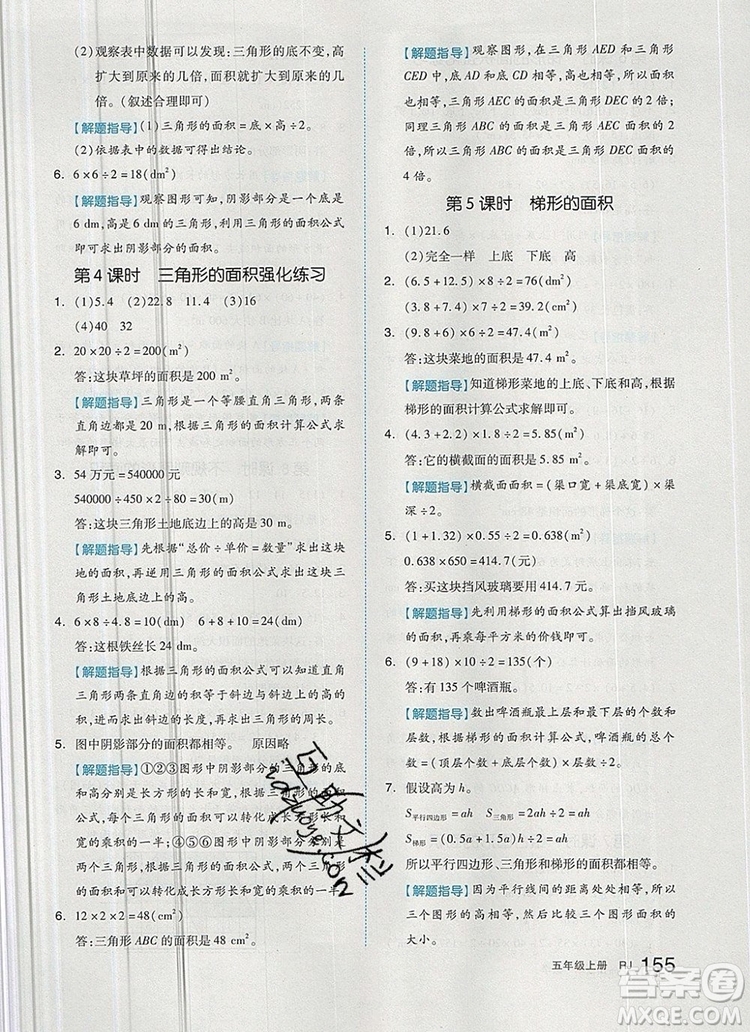 (2)观察表中数据可以发现:三角形的底不变,高
扩大到原来的几倍,面积就扩大到原来的几
倍。(叙述合理即可)
【解题指导】(1)三角形的面积=底×高÷2。
(2)依据表中的数据可得出结论。
6. 6×6÷2=18(dm²)
【解题指导】观察图形可知,阴影部分是一个底是
6 dm,高是6 dm的三角形,利用三角形的面积公式
即可求出阴影部分的面积。
第4课时 三角形的面积强化练习
1. (1)5.4 (2)22.8 11.4 (3)16
(4)40 32
2. 20×20÷2=200(m²)
答:这块草坪的面积是200 m²。
【解题指导】三角形是一个等腰直角三角形,两条
直角边都是20 m,根据三角形的面积计算公式求
解即可。
3. 54万元=540000元
540000÷450×2÷80=30(m)
答:这块三角形土地底边上的高是30 m。
【解题指导】先根据“总价÷单价=数量”求出这块
土地的面积,再逆用三角形的面积公式求出这块
三角形土地的高。
4. 6×8÷4.8=10(dm) 6+8+10=24(dm)
答:这根铁丝长24 dm。
【解题指导】根据三角形的面积公式可以知道直角
三角形两条直角边的积等于斜边与斜边上的高的
积,由此求出斜边的长度,再求出三角形的周长。
5. 图中阴影部分的面积都相等。 原因略
【解题指导】①②③图形中阴影部分的三角形的底
和高分别是长方形的长和宽,根据三角形和长方
形的面积公式可知,每个图形的面积转化成长方
形面积的一半;④⑤⑥图形中阴影部分的面积是
两个三角形的面积和,根据三角形和长方形的面
积公式,每个图形的面积转化成长方形面积的
一半。
6. 12×2×2=48(cm²)
答:三角形ABC的面积是48 cm²。
【解题指导】观察图形,在三角形AED和三角形
CED中,底AD和CD相等,三角形的高相等,面积
也相等,所以三角形AEC是三角形DEC的2倍;
同理三角形ABC的面积是三角形AEC的面积的2
倍,所以三角形ABC的面积是三角形DEC的面积的
4倍。
第5课时 梯形的面积
1. (1)21.6
(2)完全一样 上底 下底 高
2. (6.5+12.5)×8÷2=76(dm²)
(3.8+4.5)×7÷2=29.05(m²)
3. (9.8+6)×6÷2=47.4(m²)
答:这块菜地的面积是47.4 m²。
【解题指导】知道梯形菜地的上底、下底和高,根据
梯形的面积计算公式求解即可。
4. (4.3+2.2)×1.8÷2=5.85(m²)
答:它的横截面的面积是5.85 m²。
【解题指导】横截面面积=(渠口宽+渠底宽)×渠
深÷2。
5. (1+1.32)×0.55÷2=0.638(m²)
0.638×650=414.7(元)
答:买这块挡风玻璃要用414.7元。
【解题指导】先利用梯形的面积公式算出挡风玻璃
的面积,再乘每平方米的价钱即可。
6. (9+18)×10÷2=135(个)
答:有135个啤酒瓶。
【解题指导】数出啤酒瓶最上层和最下层的个数和
层数,根据梯形的面积计算公式,变形即可求出总
个数:(顶层个数+底层个数)×层数÷2=总个数。
7. 假设高为h。
S平行四边形=ah S三角形=2ah÷2=ah
S梯形=(0.5a+1.5a)h÷2=ah
所以平行四边形、三角形和梯形的面积都相等。
【解题指导】因为平行线间的距离处处相等,所以
三个图形的高相等,根据面积公式求出三个图形
的面积,然后再根据底的关系比较三个图形面积的
大小。
五年级上册 RJ 155
答案圈
MXQE.COM